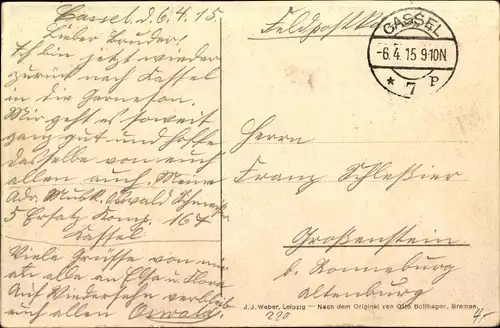 Cassel, d. 6.4.15
Lieber Bruder!
Ich bin jetzt wieder
zurück nach Kassel
in die Garneson.
Mir geht es soweit
ganz gut und hoffe
dasselbe von euch
allen auch. Meine
Adr. Musk. Oswald
5 Ersatz Komp. 167
Kassel
Viele Grüsse von mir
an alle an Elsa u.
Auf Wiedersehn verbleib
euch allen Oswald.
Feldpostk
CASSEL
-6.4.15 9-10N
* 7 P
Herrn
Franz Schleßier
Großenstein
b. Ronneburg
Altenburg
J. J. Weber, Leipzig — Nach dem Original von Otto Bollhagen, Bremen
220